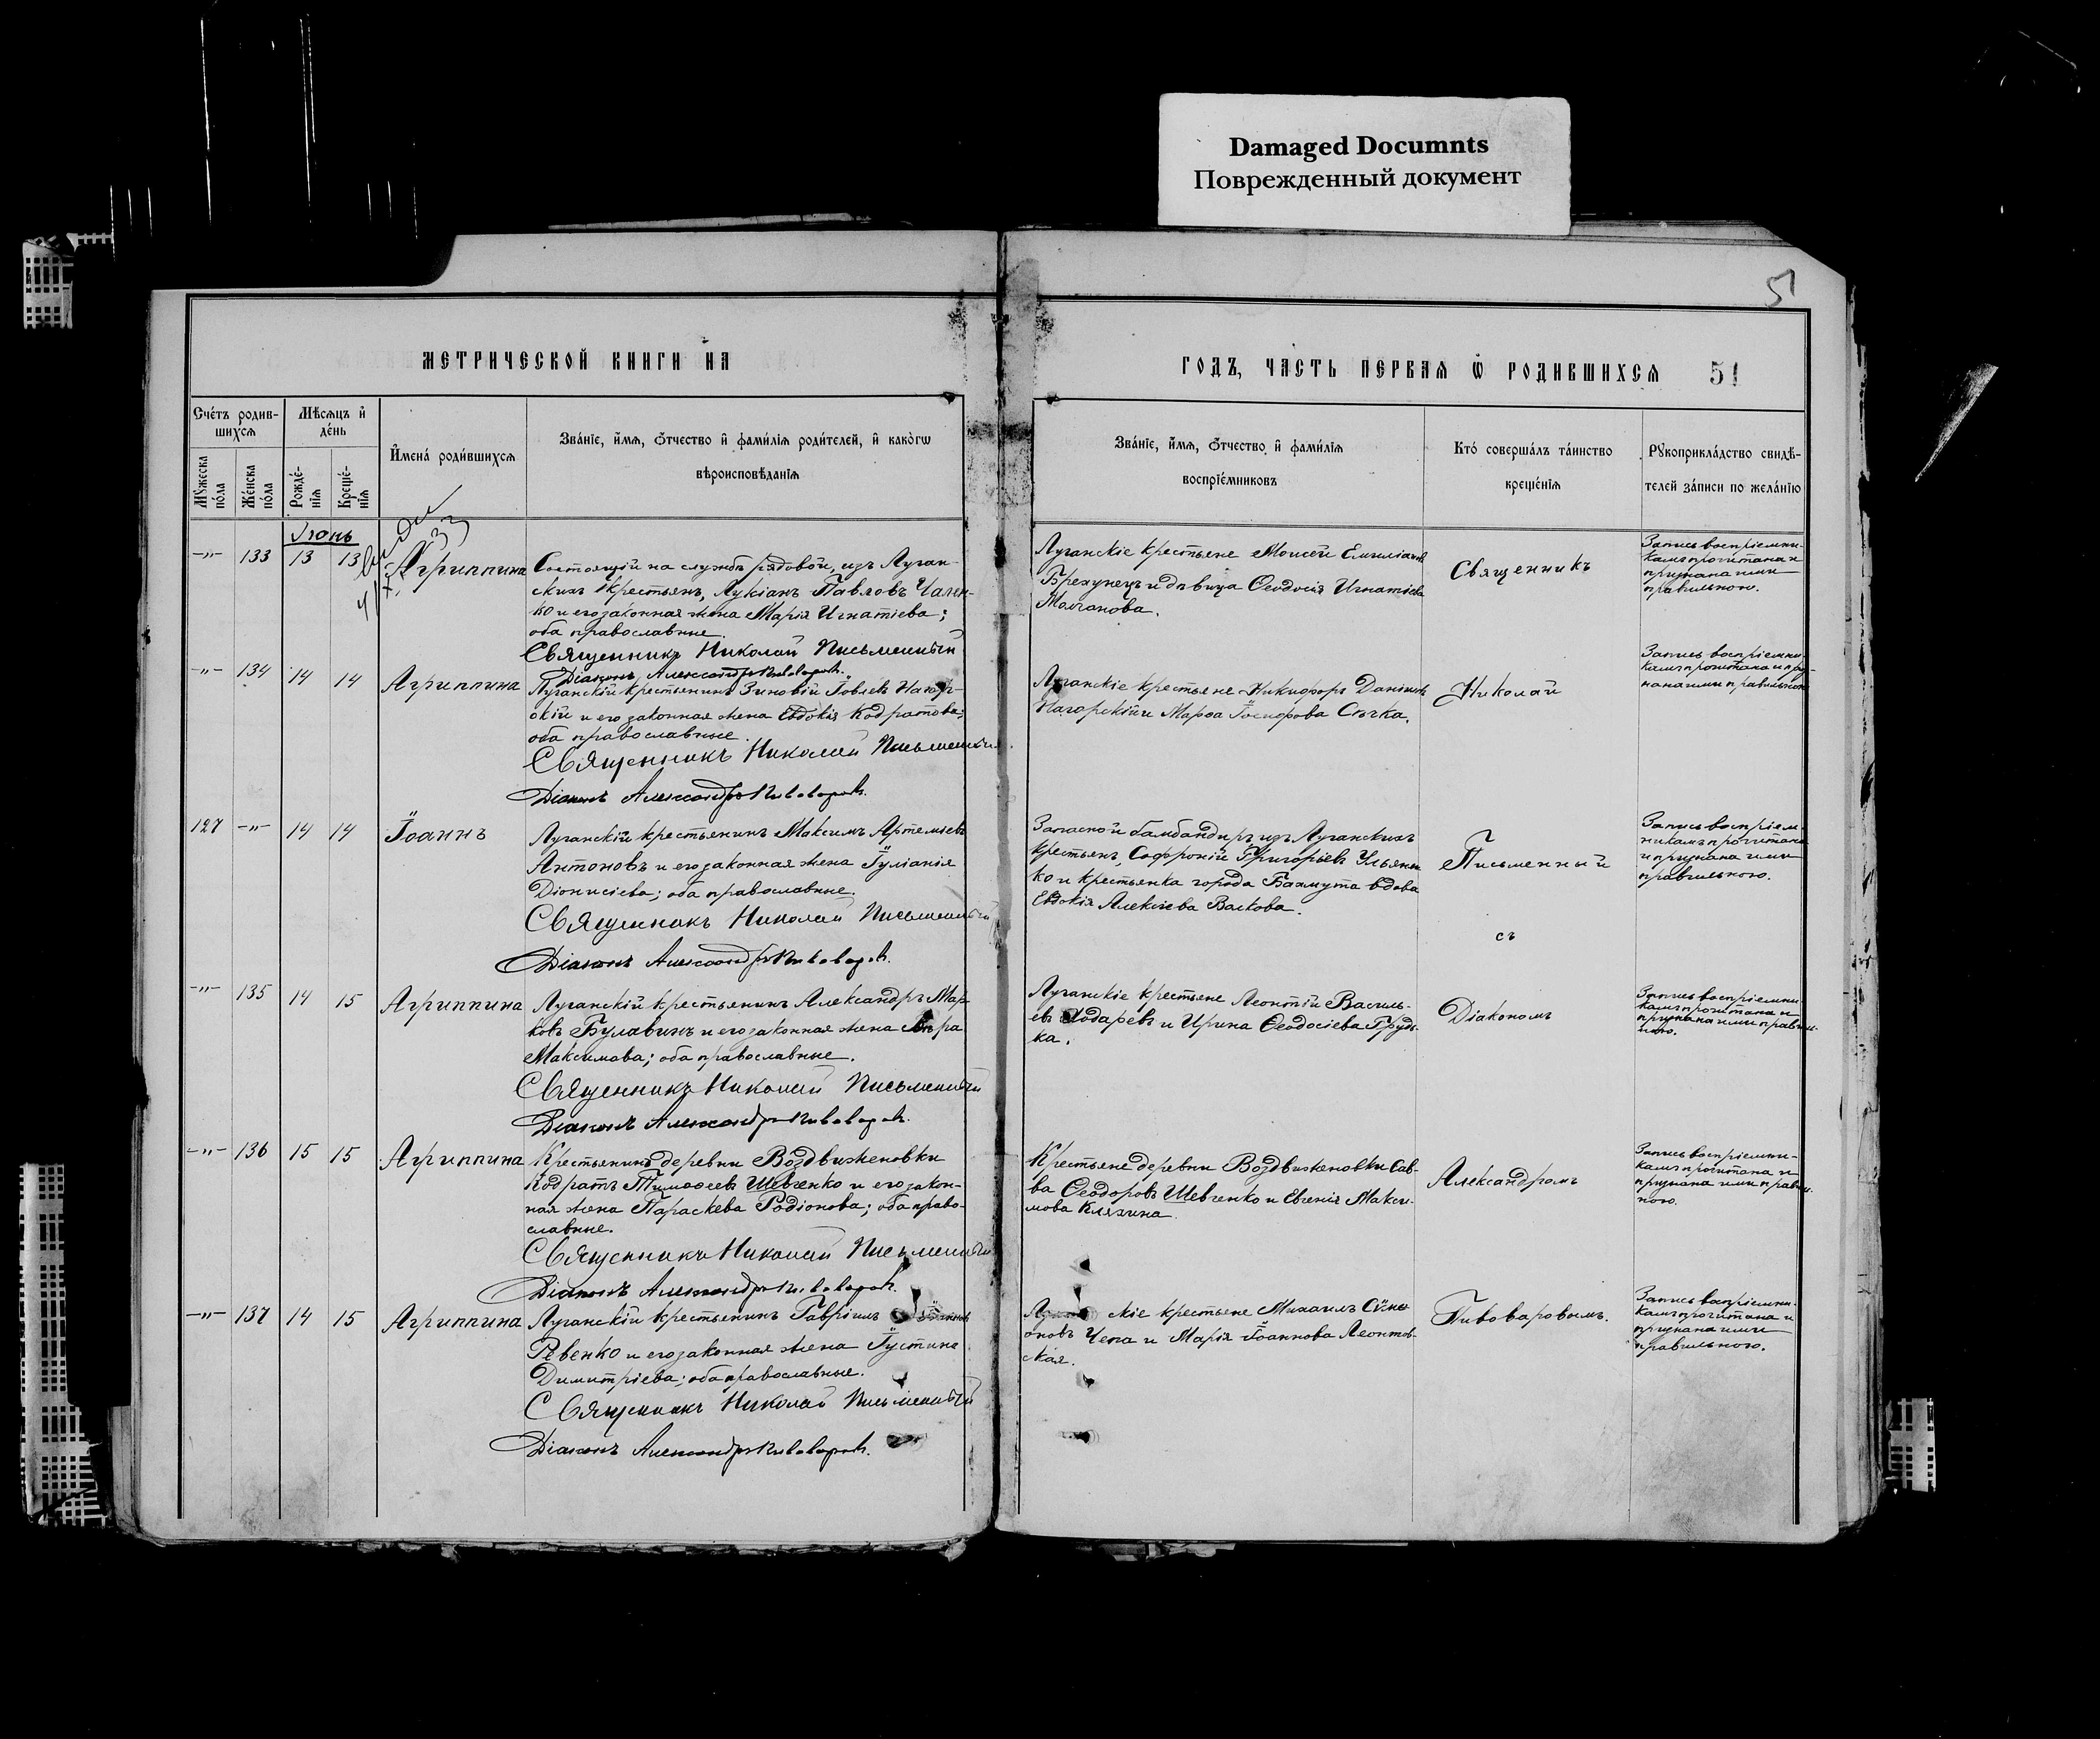 Damaged Documnts
Поврежденный документ
5
МЕТРИЧЕСКОЙ КНИГИ НА
ГОДЪ, ЧАСТЬ ПЕРВАЯ Ѿ РОДИВШИХСЯ 51
Счетъ родив-
шихся
Мѣсяцъ и
день
Мужеска
пола
Женска
пола
Рожде-
нія
Креще-
нія
Имена родившихся
Званіе, имя, отчество и фамилія родителей, и какогѡ
вѣроисповѣданія
Званіе, имя, отчество и фамилія
воспріемниковъ
Кто совершалъ таинство
крещенія
Рукоприкладство свидѣ-
телей записи по желанію
Іюнь
-"- 133 13 13 Агриппина
Состоящій на службѣ рядовой, изъ Луган-
скихъ крестьянъ, Лукіанъ Павловъ Чален-
ко и его законная жена Марія Игнатіева;
оба православные.
Священникъ Николай Письменный
Діаконъ Александръ Пивоваровъ.
Луганскіе крестьяне Моисей Емиліановъ
Брехунецъ и дѣвица Ѳеодосія Игнатіева
Молчанова.
Священникъ
Запись воспріемни-
камъ прочитана и
признана ими
правильною.
-"- 134 14 14 Агриппина
Луганскій крестьянинъ Зиновій Іовлевъ Нагор-
скій и его законная жена Евдокія Кодратова;
оба православные.
Священникъ Николай Письменный
Діаконъ Александръ Пивоваровъ.
Луганскіе крестьяне Никифоръ Даніиловъ
Нагорскій и Марѳа Іосифова Сѣчка.
Николай
Запись воспріемни-
камъ прочитана и приз-
нана ими правильною
127 -"- 14 14 Іоаннъ
Луганскій крестьянинъ Максимъ Артеміевъ
Антоновъ и его законная жена Іуліанія
Діонисіева; оба православные.
Священникъ Николай Письменный
Діаконъ Александръ Пивоваровъ.
Запасной бамбандиръ изъ Луганскихъ
крестьянъ, Софроній Григорьевъ Ульянен-
ко и крестьянка города Бахмута вдова
Евдокія Алексіева Волкова.
Письменный
съ
Запись воспріем-
никамъ прочитана
и признана ими
правильною.
-"- 135 14 15 Агриппина
Луганскій крестьянинъ Александръ Мар-
ковъ Булавинъ и его законная жена Вѣра
Максимова; оба православные.
Священникъ Николай Письменный
Діаконъ Александръ Пивоваровъ.
Луганскіе крестьяне Леонтій Василь-
евъ и Ирина Ѳеодосіева Грудь-
ка.
Діакономъ
Запись воспріемни-
камъ прочитана и
признана ими правиль-
ною.
-"- 136 15 15 Агриппина
Крестьянинъ деревни Воздвиженовки
Кодратъ Тимоѳеевъ Шевченко и его закон-
ная жена Параскева Родіонова; оба право-
славные.
Священникъ Николай Письменный
Діаконъ Александръ Пивоваровъ.
Крестьяне деревни Воздвиженовки Сав-
ва Ѳеодоровъ Шевченко и Евгенія Макси-
мова Клѧхина
Александромъ
Запись воспріемни-
камъ прочитана и
признана ими правиль-
ною.
-"- 137 14 15 Агриппина
Луганскій крестьянинъ Гавріилъ
Ревенко и его законная жена Іустина
Димитріева; оба православные.
Священникъ Николай Письменный
Діаконъ Александръ Пивоваровъ.
скіе крестьяне Михаилъ Сѵме-
оновъ Чепа и Марія Іоаннова Леонтов-
ская.
Пивоваровымъ.
Запись воспріемни-
камъ прочитана и
признана ими
правильною.